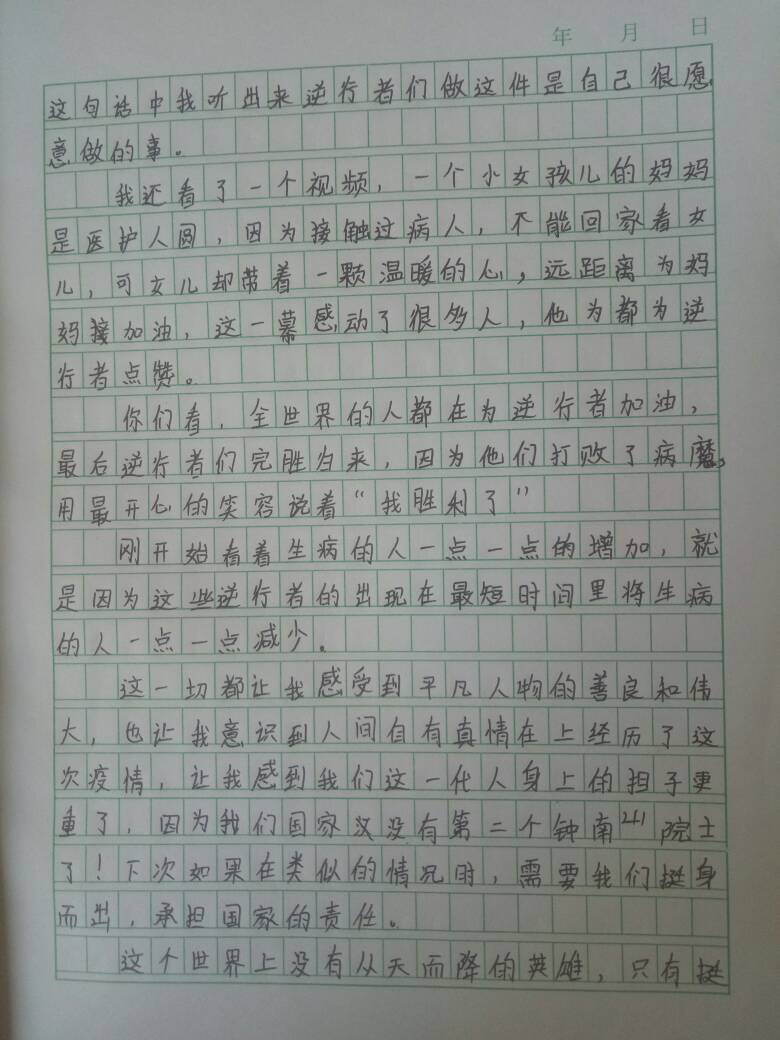 年 月 日
这句话中我听出来逆行者们做这件是自己很愿
意做的事。
我还看了一个视频，一个小女孩儿的妈妈
是医护人圆，因为接触过病人，不能回家看女
儿，可女儿却带着一颗温暖的心，远距离为妈
妈接加油，这一幕感动了很多人，他为都为逆
行者点赞。
你们看，全世界的人都在为逆行者加油，
最后逆行者们完胜归来，因为他们打败了病魔，
用最开心的笑容说着“我胜利了”
刚开始看着生病的人一点一点的增加，就
是因为这些逆行者的出现在最短时间里将生病
的人一点一点减少。
这一切都让我感受到平凡人物的善良和伟
大，也让我意识到人间自有真情在上经历了这
次疫情，让我感到我们这一代人身上的担子更
重了，因为我们国家汉没有第二个钟南山院士
了！下次如果在类似的情况时，需要我们挺身
而出，承担国家的责任。
这个世界上没有从天而降的英雄，只有挺